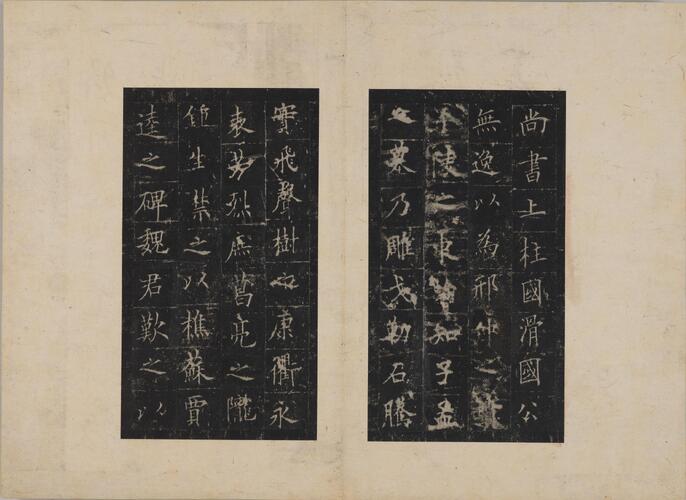 尚書上柱國滑國公
無逸以為邢仲之
陵之東知子孟
之墓乃雕戈勒石騰
實飛聲樹之康衢永
表芳烈庶葛亮之隴
鍾生禁之以樵蘇賈
逵之碑魏君歎之以